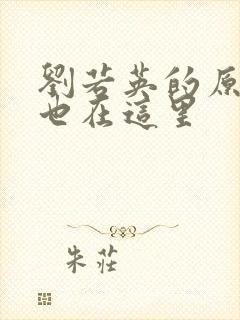 劉若英的原
也在這里
朱莊